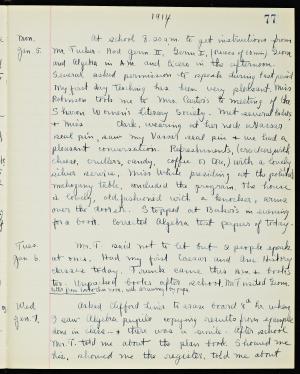 1914
77
Mon. At school 8.20 a.m. to get instructions from
Jan. 5. Mr. Tucker. Had Germ II, Germ I, (pieces of coming Geom
and Algebra in A.M. and Caesar in the afternoon.
Several asked permission to speak during last period
My first day teaching has been very pleasant. Miss
Robinson took me to Mrs. to meeting of the
Sharon Women's Literary Society. Met several ladies
+ Miss Clark, wearing at her neck a Vassar
seal pin, saw my Vassar seal pin + we had a
pleasant conversation. Refreshments, (crackers with
cheese, crullers, candy, coffee or tea,) with a lovely
silver service, Miss White presiding at the polished
mahogany table, concluded the program. The house
is lovely, old fashioned with a knocker, arms
over the door etc. Stopped at Baker's in evening
for a book. Corrected Algebra test papers of today-
Tues. Mr. T. said not to let but 2 people speak
Jan. 6. at once. Had my first Caesar and Anc History
classes today. Trunk came this A.m. + books
too. Unpacked books after school. Mr. T. visited Geom.
Wed. Asked Clifford Lines to erase board 1/2 hr when
Jan. 7. I saw Algebra pupils copying results from examples
done in class - + there was a smile. After school
Mr. T. told me about the plan book. Showed me
his, showed me the register, told me about